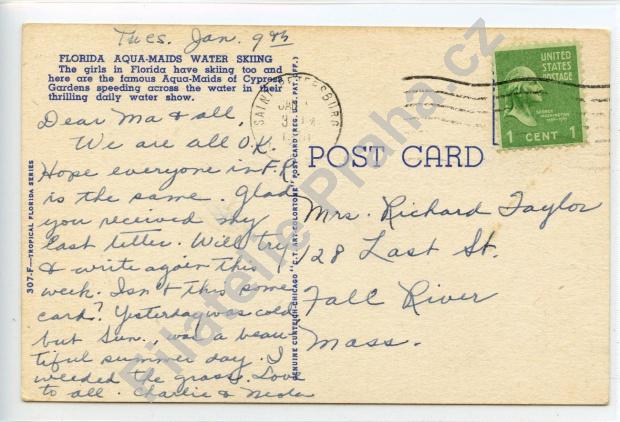 Tues. Jan. 9th
FLORIDA AQUA-MAIDS WATER SKIING
The girls in Florida have skiing too and
here are the famous Aqua-Maids of Cypress
Gardens speeding across the water in their
thrilling daily water show.
Dear Ma & all,
We are all O.K.
Hope everyone in F.R.
is the same. Glad
you received my
last letter. Will try
& write again this
week. Isn't this some
card? Yesterday was cold
but Sun., was a beau-
tiful summer day. I
weeded the grass. Love
to all. Charlie &
307-F—TROPICAL FLORIDA SERIES
GENUINE CURTEICH-CHICAGO "C.T. ART-COLORTONE" POST CARD (REG. U.S. PAT. OFF.)
SAINT PETERSBURG
JAN
UNITED
STATES
POSTAGE
GEORGE
WASHINGTON
1 CENT 1
POST CARD
Mrs. Richard Taylor
128 Last St.
Fall River
Mass.
Filatelie Praha.cz